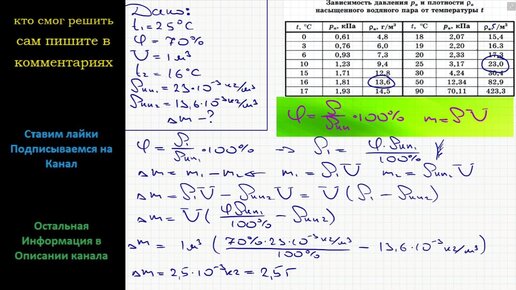 кто смог решить
сам пишите в
комментариях
Ставим лайки
Подписываемся на
Канал
Остальная
Информация в
Описании канала
Дано:
t₁ = 25°C
φ = 70%
V = 1 м³
t₂ = 16°C
ρнп₁ = 23·10⁻³ кг/м³
ρнп₂ = 13,6·10⁻³ кг/м³
Δm – ?
Зависимость давления pн и плотности ρн
насыщенного водяного пара от температуры t
t, °C pн, кПа ρн, г/м³ t, °C pн, кПа ρн, г/м³
0 0,61 4,8 18 2,07 15,4
3 0,76 6,0 19 2,20 16,3
6 0,93 7,3 20 2,33 17,3
10 1,23 9,4 25 3,17 23,0
15 1,71 12,8 30 4,24 30,4
16 1,81 13,6 50 12,34 82,9
17 1,93 14,5 90 70,11 423,3
φ = ρ/ρнп · 100% m = ρV
φ = ρ₁/ρнп₁ · 100% → ρ₁ = φ·ρнп₁/100%
Δm = m₁ – m₂ m₁ = ρ₁V m₂ = ρнп₂V
Δm = ρ₁V – ρнп₂V = V(ρ₁ – ρнп₂)
Δm = V(φρнп₁/100% – ρнп₂)
Δm = 1 м³ (70%·23·10⁻³ кг/м³/100% – 13,6·10⁻³ кг/м³)
Δm = 2,5·10⁻³ кг = 2,5 г